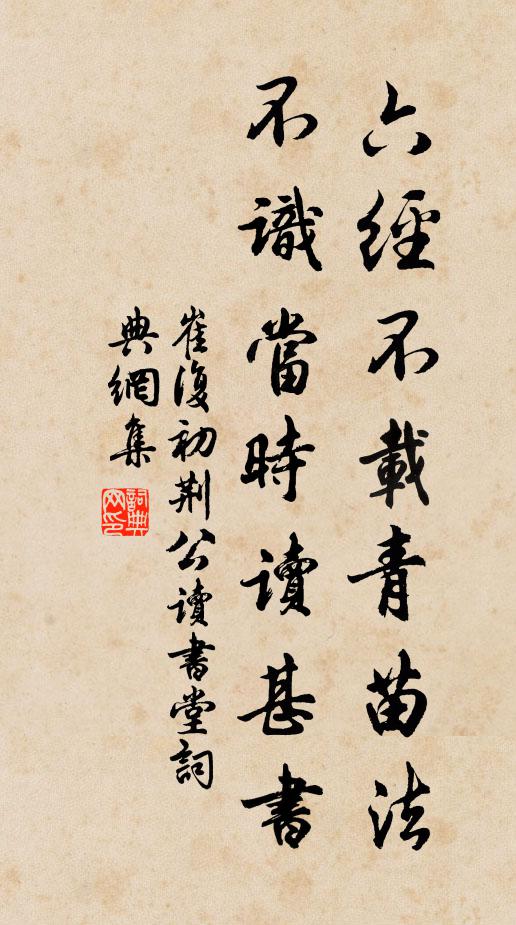 六經不載青苗法
不識當時讀甚書
崔復初荆公讀書堂詞
典網集
詞典網印